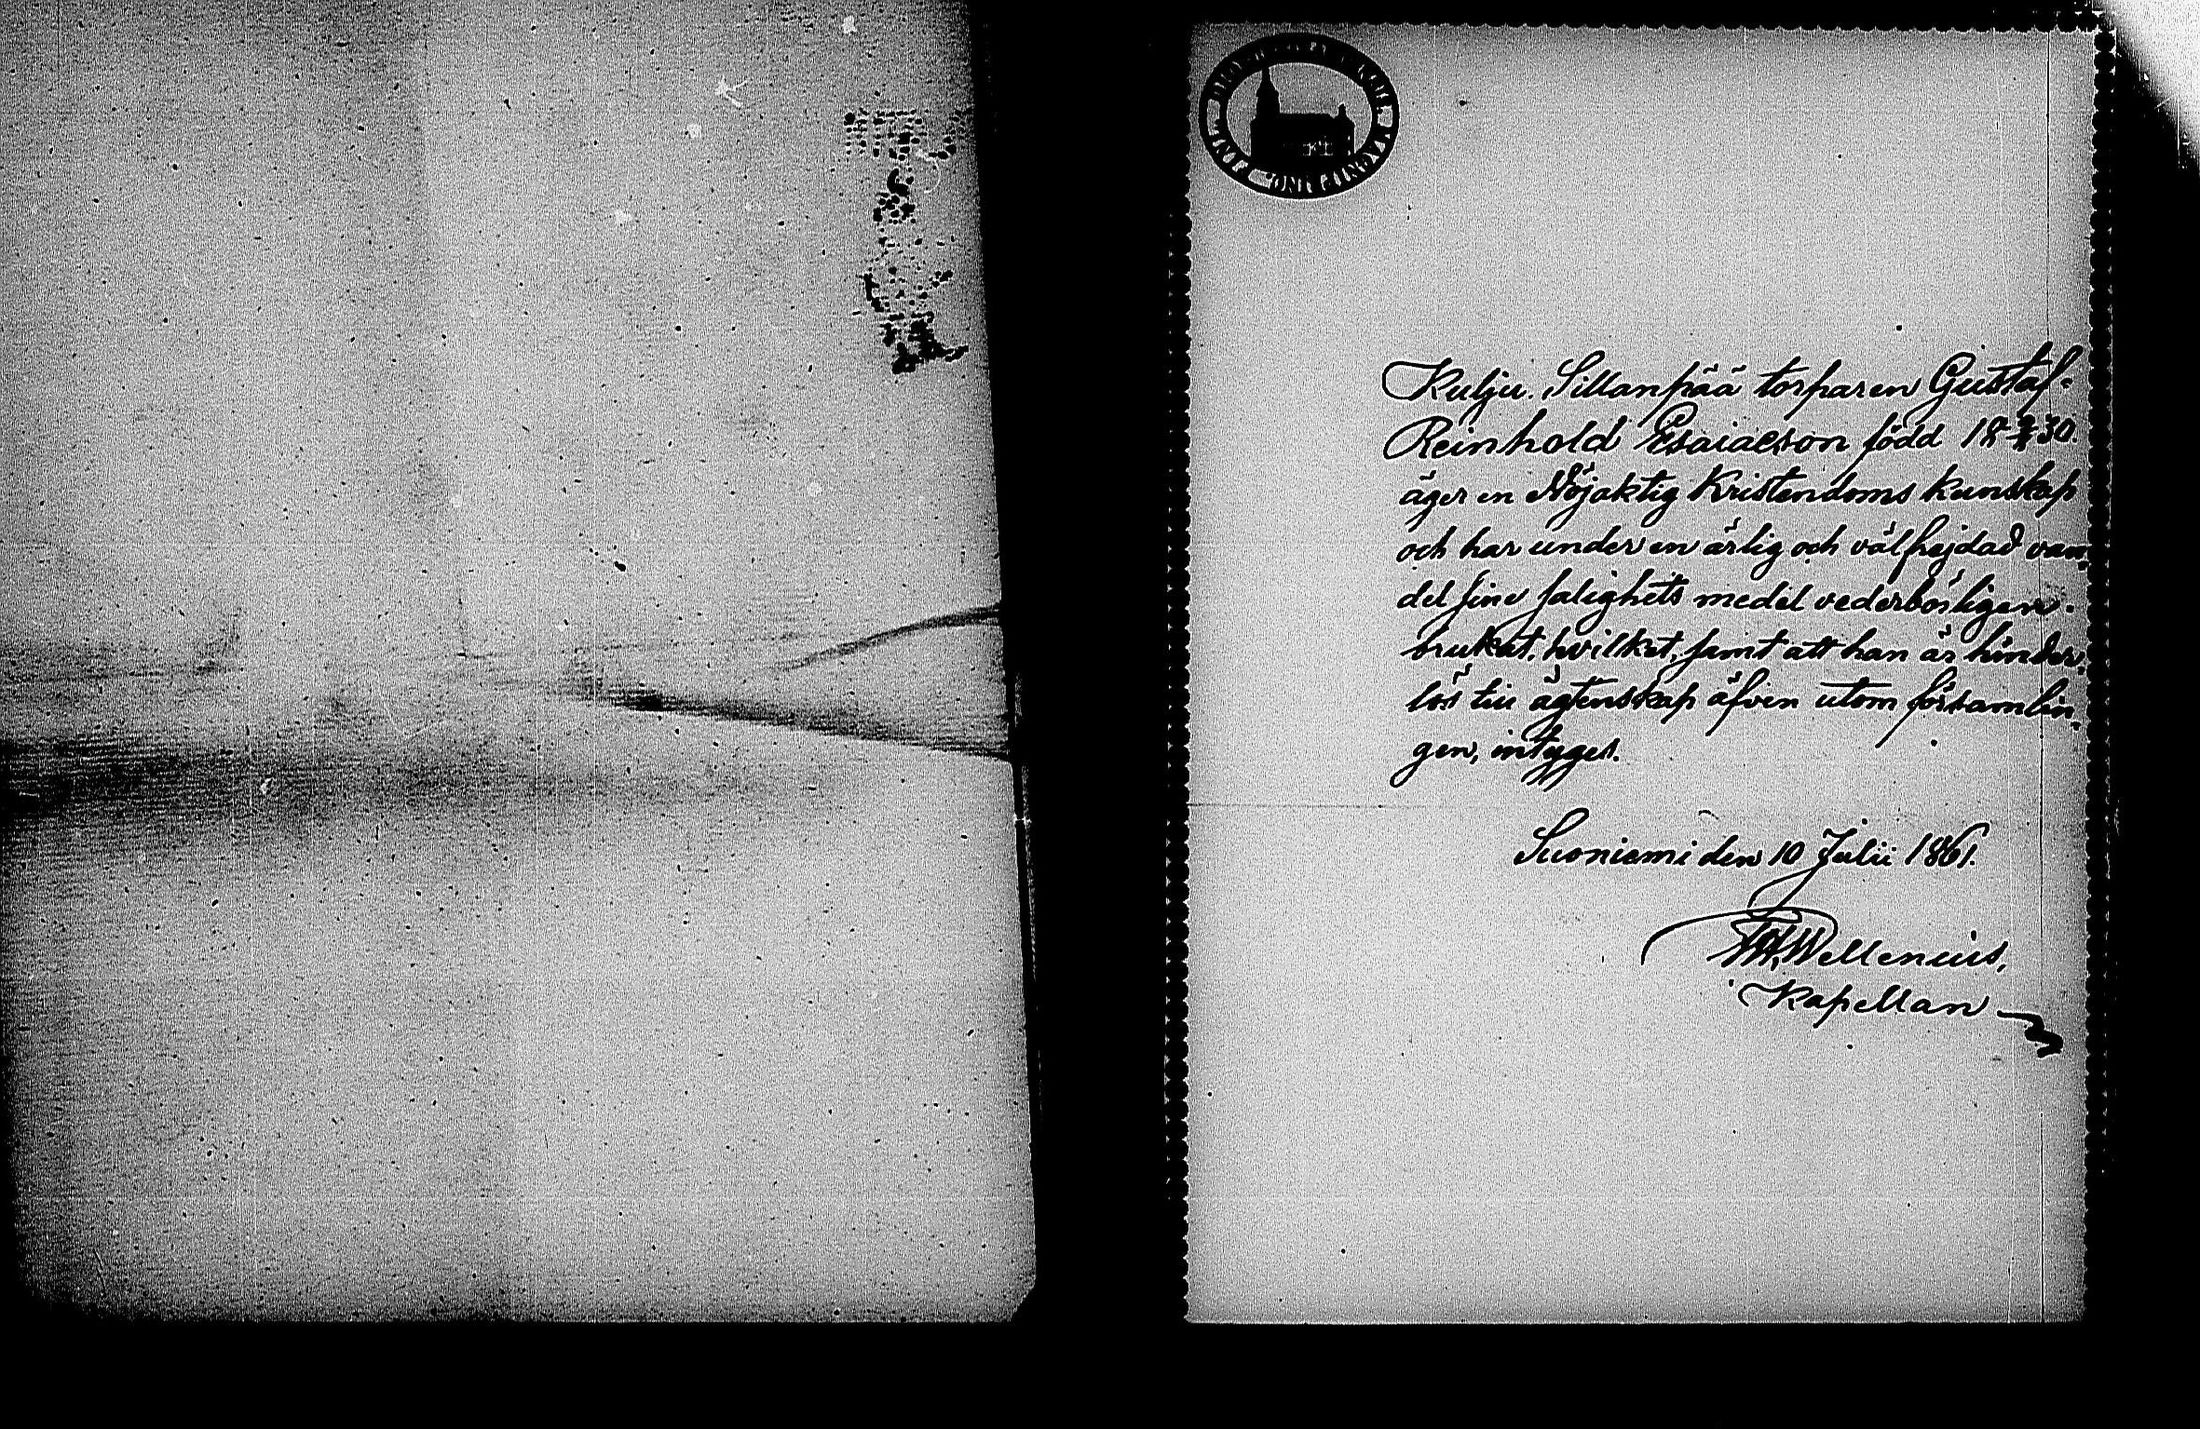 Kulju. Sillanpää torparen Gustaf-
Reinhold Esaiaeson född 18 30.
äger en Nöjaktig Kristendoms kunskap
och har under en ärlig och välfrejdad van,
del sine salighets medel vederbörligen.
brukat, hvilket, samt att han är hinder,
lös till ägtenskap äfven utom församlin,
gen, intyges.
Suoniemi den 10 Julii 1861.
Wellenius,
Kapellan